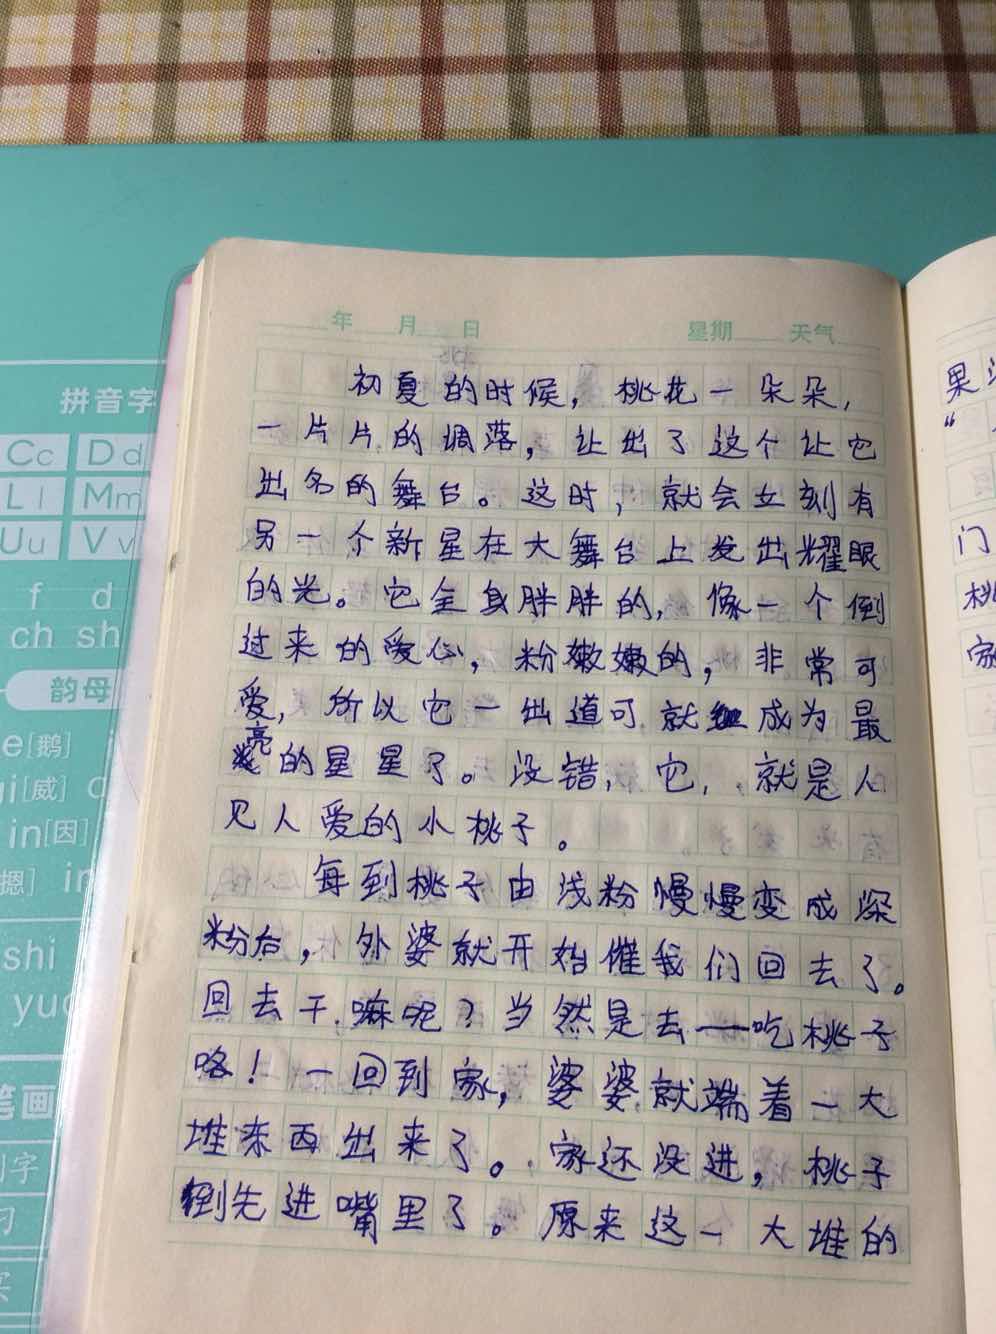 年 月 日 星期 天气
初夏的时候，桃花一朵朵，
一片片的调落，让出了这个让它
出名的舞台。这时，就会立刻有
另一个新星在大舞台上发出耀眼
的光。它全身胖胖的，像一个倒
过来的爱心，粉嫩嫩的，非常可
爱，所以它一出道可就成为最
亮的星星了。没错，它，就是人
见人爱的小桃子。
每到桃子由浅粉慢慢变成深
粉后，外婆就开始催我们回去了。
回去干嘛呢？当然是去——吃桃子
咯！一回到家，婆婆就端着一大
堆东西出来了。家还没进，桃子
倒先进嘴里了。原来这一大堆的
果
“
门
桃
家
拼音字
Cc Dd
Ll Mm
Uu Vv
f d
ch sh
韵母
e[鹅]
ui[威]
in[因]
[摁]
shi
yu
笔画